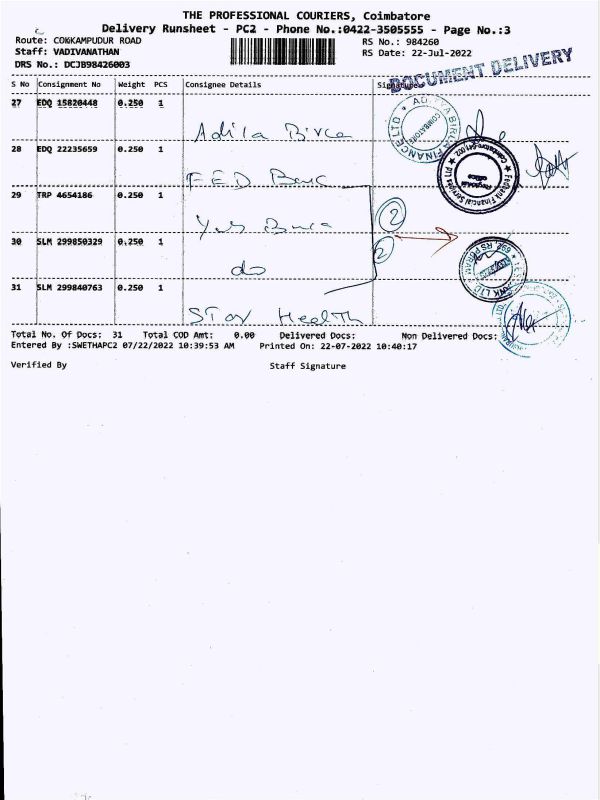 THE PROFESSIONAL COURIERS, Coimbatore
Delivery Runsheet - PC2 - Phone No.:0422-3505555 - Page No.:3
Route: COKKAMPUDUR ROAD
RS No.: 984260
Staff: VADIVANATHAN
RS Date: 22-Jul-2022
DRS No.: DCJB98426003
DOCUMENT DELIVERY
S No Consignment No Weight PCS Consignee Details Signature
27 EDQ 15820448 0.250 1
Adila Birca
28 EDQ 22235659 0.250 1
FED Banc
29 TRP 4654186 0.250 1
2
30 SLM 299850329 0.250 1
2
do
31 SLM 299840763 0.250 1
STar Health
ADITYA BIRLA FINANCE LTD
COIMBATORE
Fedbank Financial Services Ltd
Coimbatore-641 002
Regional Office
Total No. Of Docs: 31 Total COD Amt: 0.00 Delivered Docs: Non Delivered Docs:
Entered By :SWETHAPC2 07/22/2022 10:39:53 AM Printed On: 22-07-2022 10:40:17
Verified By Staff Signature